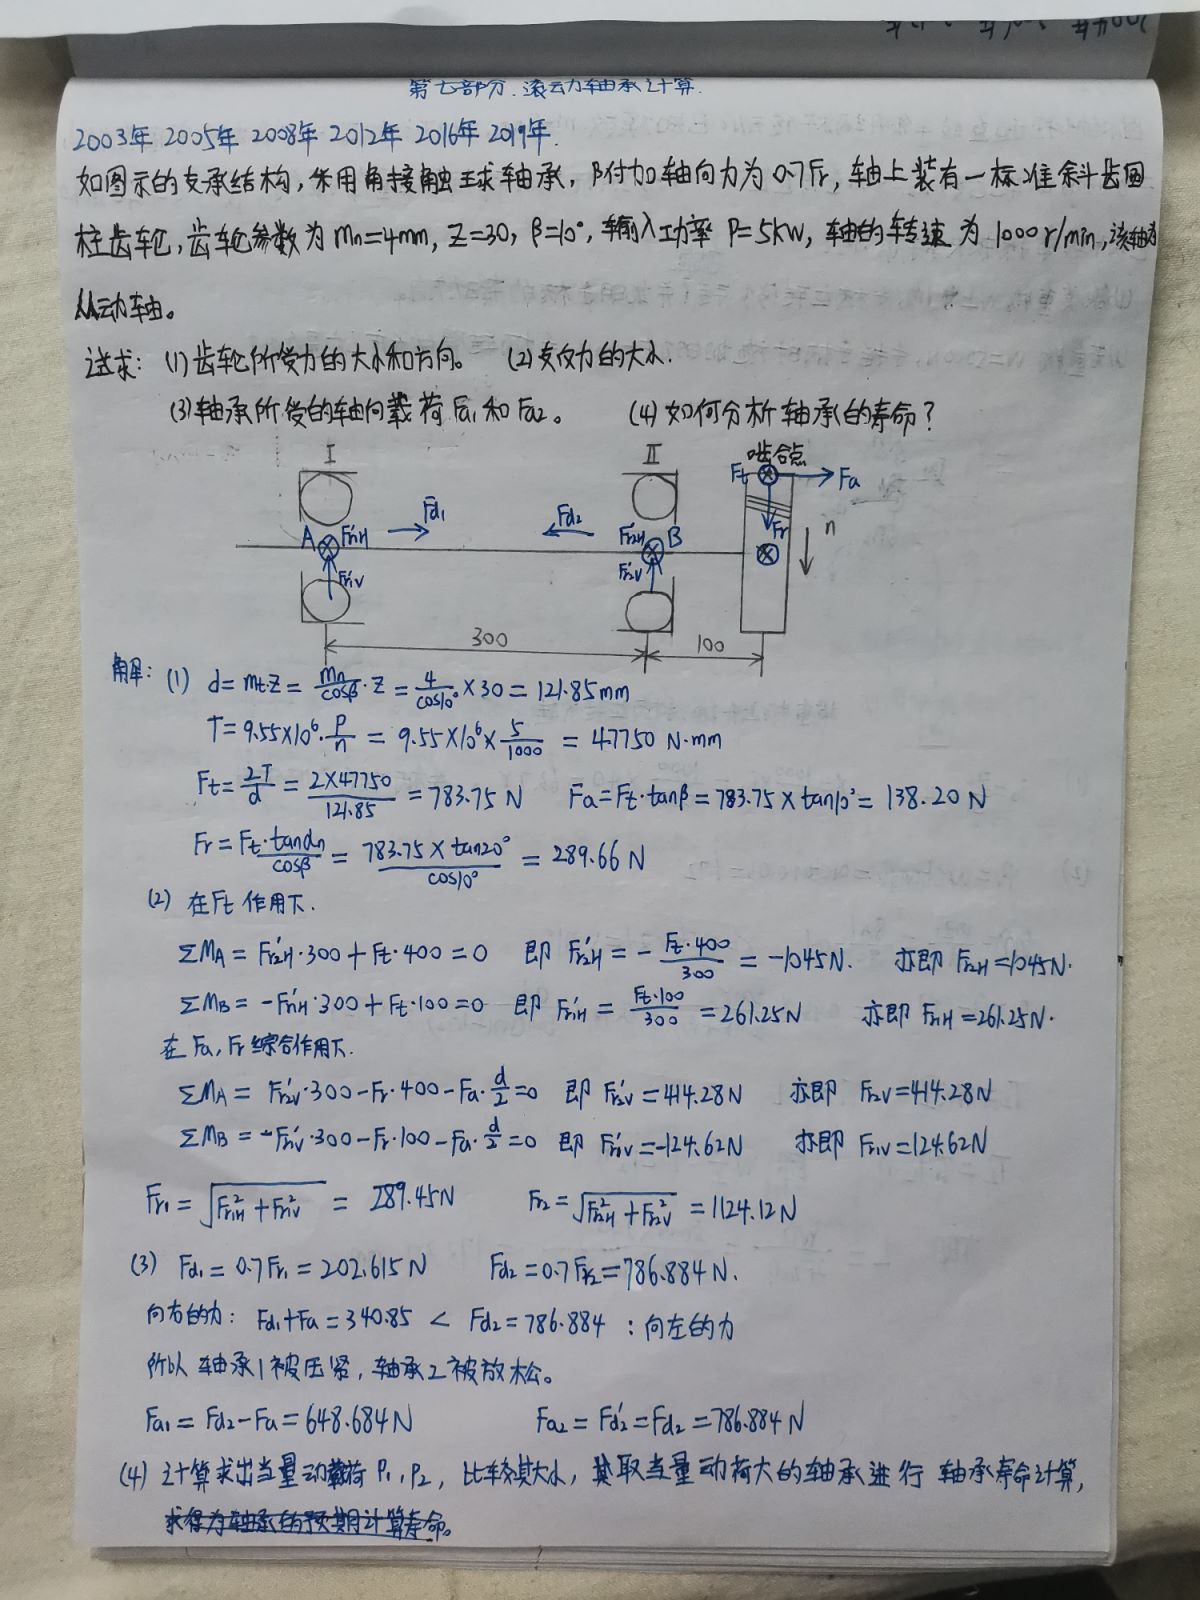 第七部分.滚动轴承计算.
2003年 2005年 2008年 2012年 2016年 2019年.
如图示的支承结构,采用角接触球轴承,附加轴向力为0.7Fr,轴上装有一标准斜齿圆
柱齿轮,齿轮参数为 mn=4mm, Z=30, β=10°,输入功率 P=5kW, 轴的转速为 1000r/min,该轴为
从动轴。
试求: (1)齿轮所受力的大小和方向。 (2)支反力的大小.
(3)轴承所受的轴向载荷Fa1和Fa2。 (4)如何分析轴承的寿命?
I II 啮合点
Ft Fa
Fd1 Fd2 Fr n
A Fr1H' Fr2H' B
Fr1V' Fr2V'
300 100
解: (1) d=mt·Z=mn/cosβ·Z=4/cos10°×30=121.85mm
T=9.55×10⁶·P/n=9.55×10⁶×5/1000=47750 N·mm
Ft=2T/d=2×47750/121.85=783.75 N Fa=Ft·tanβ=783.75×tan10°=138.20 N
Fr=Ft·tanαn/cosβ=783.75×tan20°/cos10°=289.66 N
(2) 在Ft作用下.
ΣMA=Fr2H'·300+Ft·400=0 即 Fr2H'=-Ft·400/300=-1045N. 亦即 Fr2H=1045N.
ΣMB=-Fr1H'·300+Ft·100=0 即 Fr1H'=Ft·100/300=261.25N 亦即 Fr1H=261.25N.
在Fa,Fr综合作用下.
ΣMA=Fr2V'·300-Fr·400-Fa·d/2=0 即 Fr2V'=414.28N 亦即 Fr2V=414.28N
ΣMB=-Fr1V'·300-Fr·100-Fa·d/2=0 即 Fr1V'=-124.62N 亦即 Fr1V=124.62N
Fr1=√(Fr1H²+Fr1V²)=289.45N Fr2=√(Fr2H²+Fr2V²)=1124.12N
(3) Fd1=0.7Fr1=202.615N Fd2=0.7Fr2=786.884N.
向右的力: Fd1+Fa=340.85 < Fd2=786.884 :向左的力
所以轴承1被压紧,轴承2被放松。
Fa1=Fd2-Fa=648.684N Fa2=Fd2'=Fd2=786.884N
(4) 计算求出当量动载荷P1,P2,比较其大小,取当量动荷大的轴承进行轴承寿命计算,
求得为轴承的预期计算寿命。